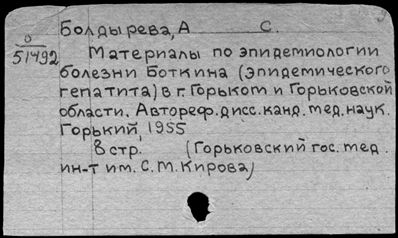 Болдырева, А С.
0
51492
Материалы по эпидемиологии
болезни Боткина (Эпидемического
гепатита) в г. Горьком и Горьковской
области. Автореф. дисс. канд. мед. наук.
Горький, 1955
8 стр. (Горьковский гос. мед.
ин-т им. С. М. Кирова)